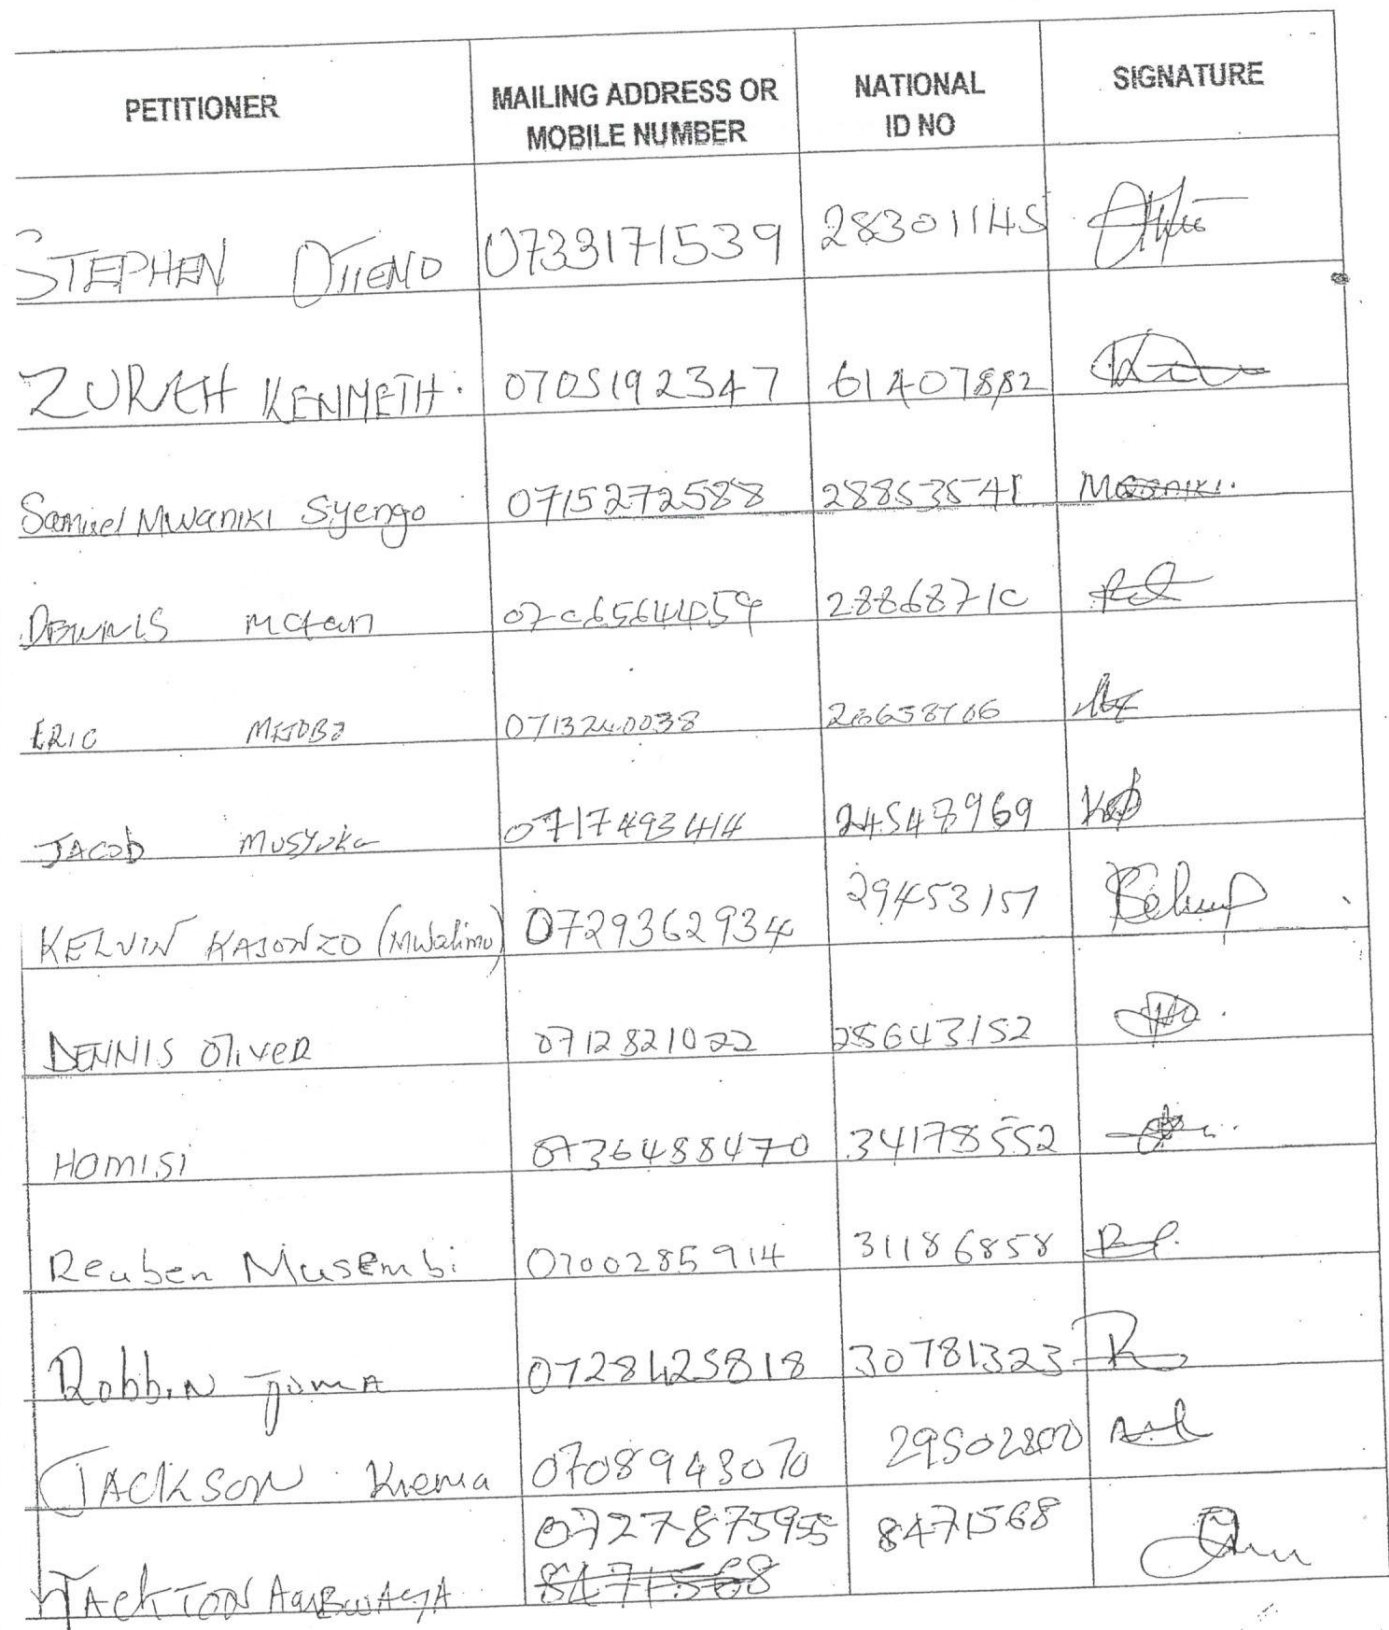 PETITIONER MAILING ADDRESS OR MOBILE NUMBER NATIONAL ID NO SIGNATURE
STEPHEN OTIENO 0733171539 28301145
KENNETH. 0705192347 61407882
Samuel Mwaniki Syengo 0715272588 28853541
DENNIS
ERIC
JACOB Musyoka 0717493414 24548969
KELVIN KAJONZO (Mwalimu) 0729362934 29453157
DENNIS OliVER 0712821022 25643152
HOMISI 0736488470 34178552
Reuben Musembi 0700285914 31186858
Robbin Juma 0728425818 30781323
JACKSON Kiema 0708943070
JACKTON 0727875955 8471568
8471568